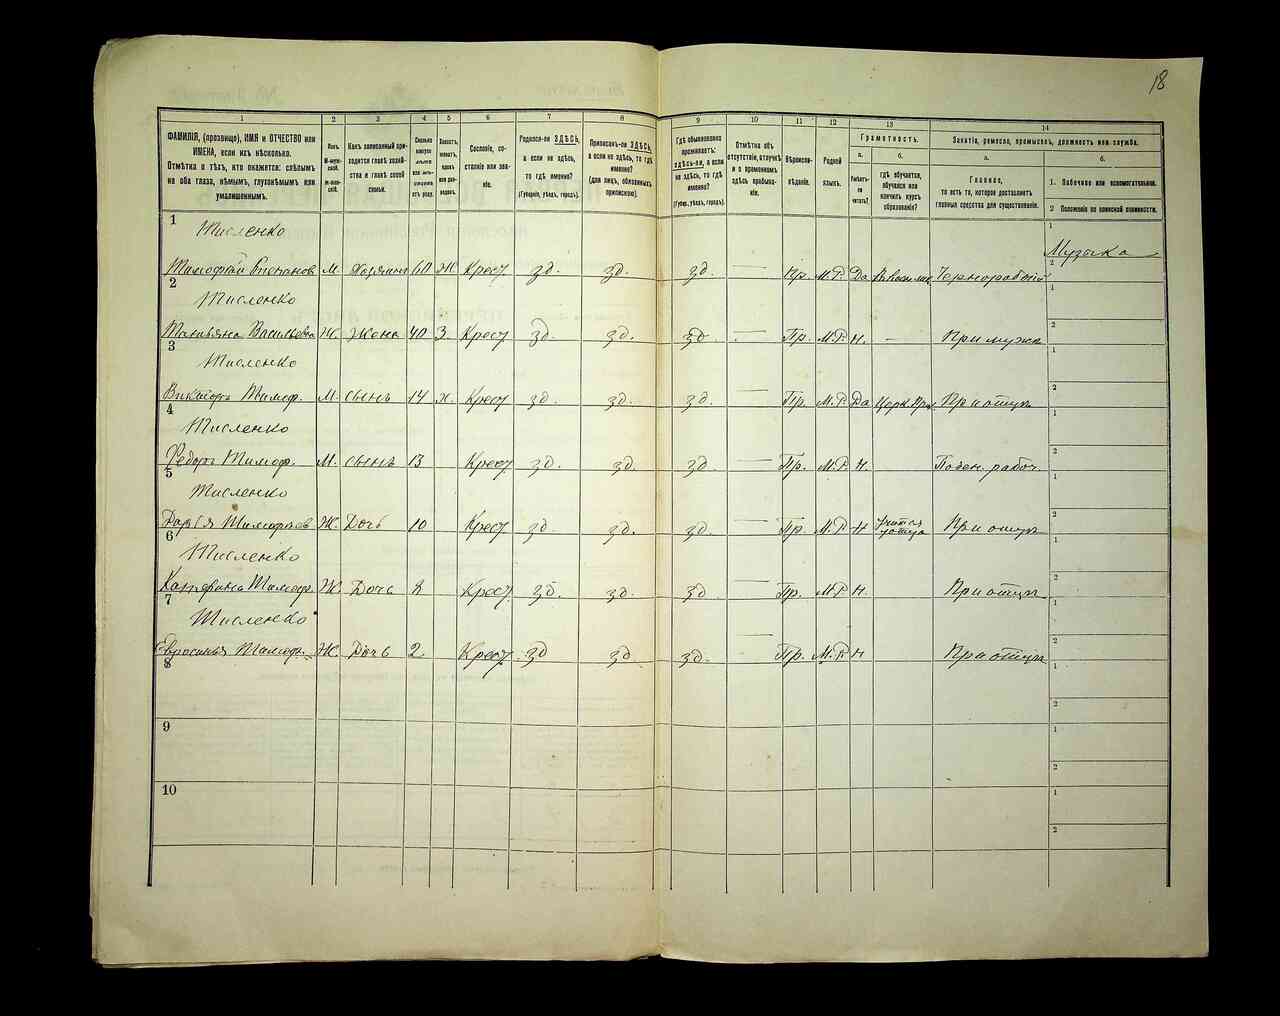 18
1 2 3 4 5 6 7 8 9 10 11 12 13 14
ФАМИЛІЯ, (прозвище), ИМЯ и ОТЧЕСТВО или ИМЕНА, если ихъ нѣсколько.
Отмѣтка о тѣхъ, кто окажется: слѣпымъ на оба глаза, нѣмымъ, глухонѣмымъ или умалишеннымъ.
Полъ. М-мужской. Ж-женской.
Какъ записанный приходится главѣ хозяйства и главѣ своей семьи.
Сословіе, состояніе или званіе.
Родился-ли ЗДѢСЬ, а если не здѣсь, то гдѣ именно?
(Губернія, уѣздъ, городъ).
Приписанъ-ли ЗДѢСЬ, а если не здѣсь, то гдѣ именно?
(для лицъ, обязанныхъ припискою).
Гдѣ обыкновенно проживаетъ: здѣсь-ли, а если не здѣсь, то гдѣ именно?
(Губерн., уѣздъ, городъ).
Отмѣтка объ отсутствіи, отлучкѣ и о временномъ здѣсь пребываніи.
Вѣроисповѣданіе.
Родной языкъ.
Грамотность.
а. Умѣетъ-ли читать?
б. гдѣ обучается, обучался или кончилъ курсъ образованія?
Занятія, ремесло, промыселъ, должность или служба.
а. Главное, то есть то, которое доставляетъ главныя средства для существованія.
б.
1. Побочное или вспомогательное.
2 Положеніе по воинской повинности.
1 Тисленко
Тимофей Степанов М. Хозяинъ 60 Ж Крест зд. зд. зд. Пр. М.Р. Да Чернорабочій Музыка
2 Тисленко
Татьяна Васильевна Ж. Жена 40 З. Крест зд. зд. зд. Пр. М.Р. Н. При мужѣ
3 Тисленко
Викторъ Тимоф. М. сынъ 14 х. Крест зд. зд. зд. Пр. М.Р. Да При отцѣ
4 Тисленко
Федоръ Тимоф. М. сынъ 13 Крест зд. зд. зд. Пр. М.Р. Н. Поден. рабоч.
5 Тисленко
Дарья Тимофѣев Ж. Дочь 10 Крест зд зд. зд. Пр. М.Р. Н При отцѣ
6 Тисленко
Катерина Тимоф. Ж. Дочь 8 Крест зд. зд. зд. Пр. М.Р. Н. При отцѣ
7 Тисленко
Евросинья Тимоф. Ж. Дочь 2. Крест зд зд зд. Пр. М.Р. Н При отцѣ
8
9
10